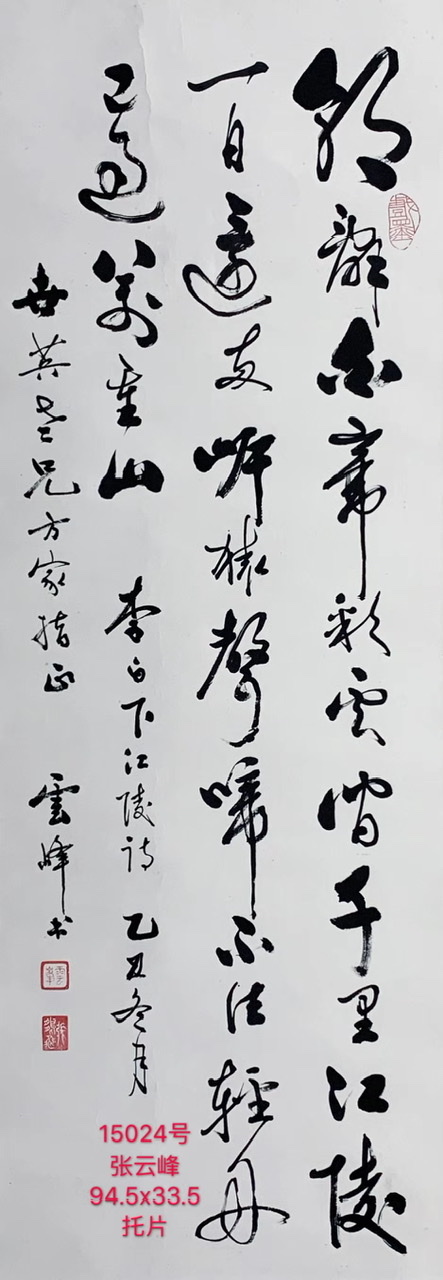 朝辭白帝彩云間千里江陵
一日還两岸猿聲啼不住輕舟
已過萬重山 李白下江陵诗 乙丑冬月
世英老兄方家指正 雲峰书
15024号
张云峰
94.5x33.5
托片